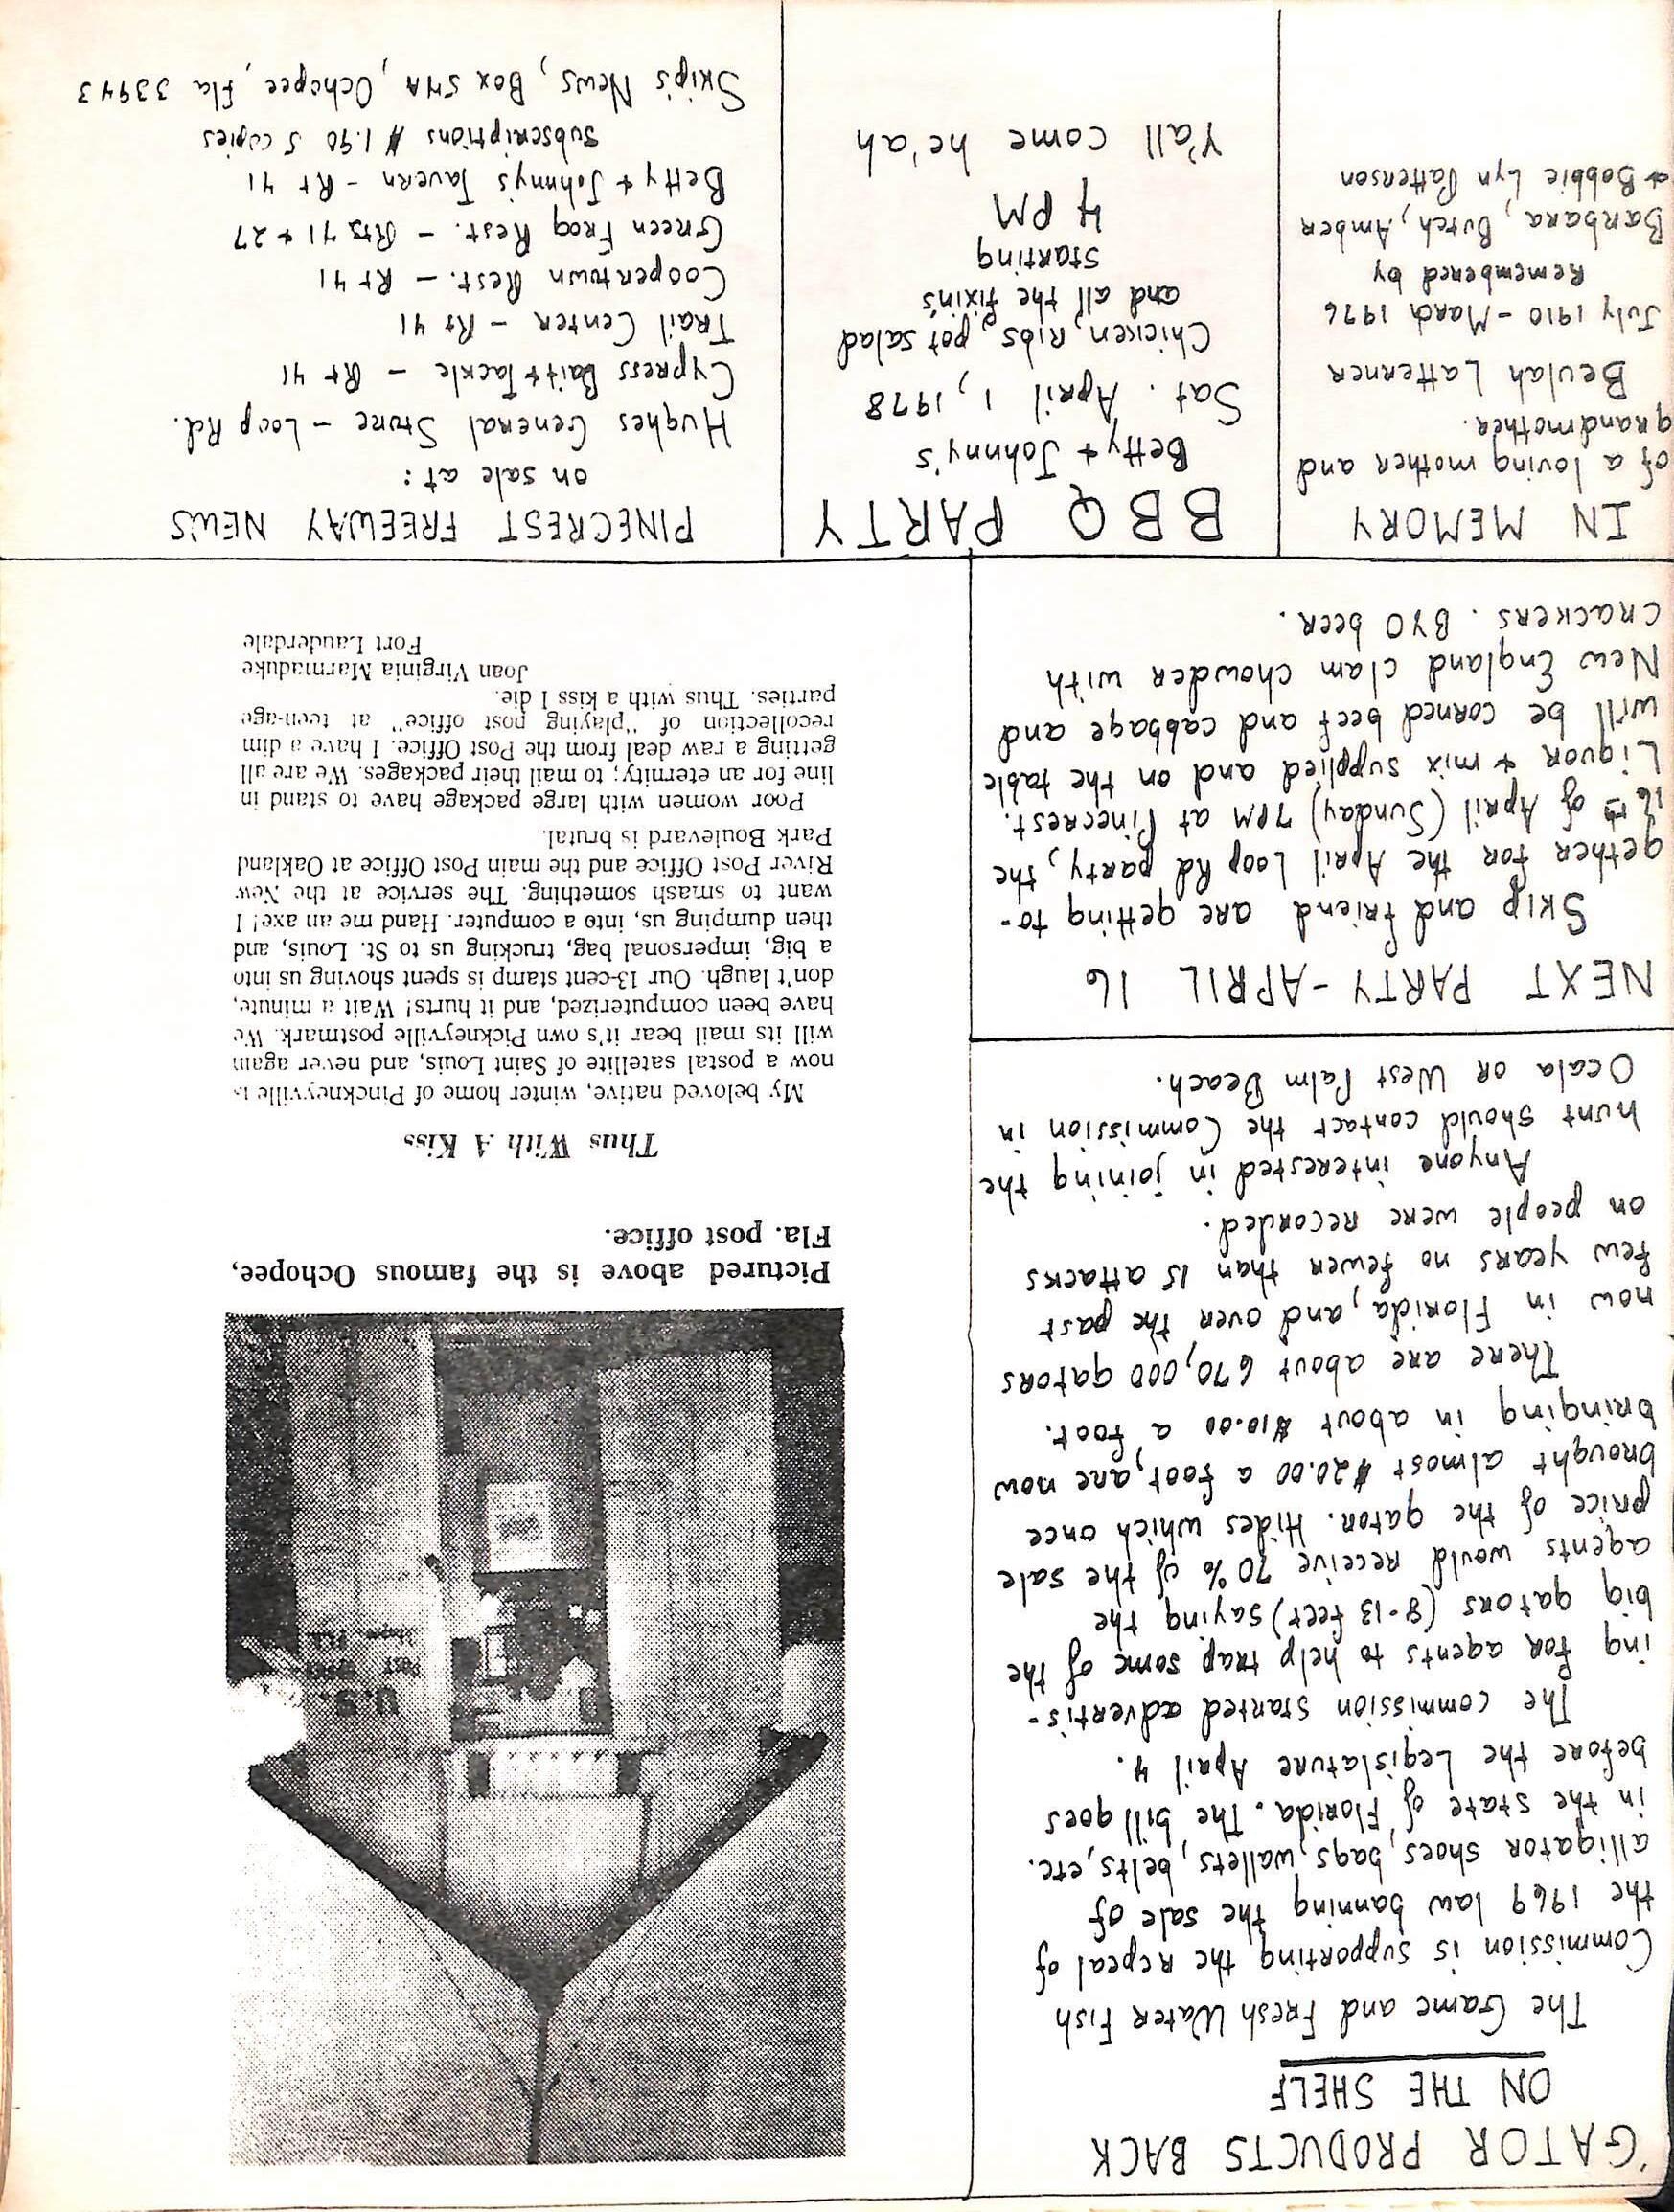 'GATOR PRODUCTS BACK
ON THE SHELF
The Game and Fresh Water Fish
Commission is supporting the repeal of
the 1969 law banning the sale of
alligator shoes, bags, wallets, belts, etc.
in the state of Florida. The bill goes
before the Legislature April 4.
The commission started advertis-
ing for agents to help trap some of the
big gators (8-13 feet) saying the
agents would receive 70% of the sale
price of the gator. Hides which once
brought almost $20.00 a foot, are now
bringing in about $10.00 a foot.
There are about 670,000 gators
now in Florida, and over the past
few years no fewer than 15 attacks
on people were recorded.
Anyone interested in joining the
hunt should contact the Commission in
Ocala or West Palm Beach.
NEXT PARTY - APRIL 16
Skip and friend are getting to-
gether for the April Loop Rd party, the
16th of April (Sunday) 7PM at Pinecrest.
Liquor & mix supplied and on the table
will be corned beef and cabbage and
New England clam chowder with
crackers. BYO beer.
U.S.
Post Office
Pictured above is the famous Ochopee,
Fla. post office.
Thus With A Kiss
My beloved native, winter home of Pinckneyville is
now a postal satellite of Saint Louis, and never again
will its mail bear it's own Pickneyville postmark. We
have been computerized, and it hurts! Wait a minute,
don't laugh. Our 13-cent stamp is spent shoving us into
a big, impersonal bag, trucking us to St. Louis, and
then dumping us, into a computer. Hand me an axe! I
want to smash something. The service at the New
River Post Office and the main Post Office at Oakland
Park Boulevard is brutal.
Poor women with large package have to stand in
line for an eternity; to mail their packages. We are all
getting a raw deal from the Post Office. I have a dim
recollection of "playing post office" at teen-age
parties. Thus with a kiss I die.
Joan Virginia Marmaduke
Fort Lauderdale
IN MEMORY
of a loving mother and
grandmother.
Beulah Latterner
July 1910 - March 1976
Remembered by
Barbara, Butch, Amber
& Bobbie Lyn Patterson
BBQ PARTY
Betty & Johnny's
Sat. April 1, 1978
Chicken, Ribs, pot salad
and all the fixin's
Starting
4 PM
Y'all come he'ah
PINECREST FREEWAY NEWS
on sale at:
Hughes General Store - Loop Rd.
Cypress Bait & Tackle - Rt 41
Trail Center - Rt 41
Coopertown Rest. - Rt 41
Green Frog Rest. - Rts 41 & 27
Betty & Johnny's Tavern - Rt 41
Subscriptions $1.90 5 copies
Skip's News, Box 54A, Ochopee, Fla 33943